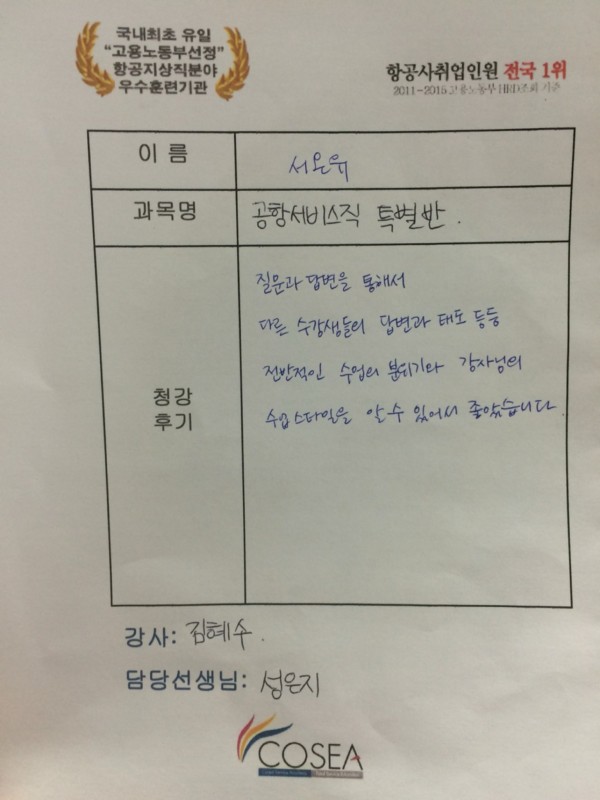 국내최초 유일
"고용노동부선정"
항공지상직분야
우수훈련기관
항공사취업인원 전국 1위
2011~2015 고용노동부 HRD조회 기준
이 름
서온유
과목명
공항서비스직 특별반.
청강
후기
질문과 답변을 통해서
다른 수강생들의 답변과 태도 등등
전반적인 수업의 분위기와 강사님의
수업스타일을 알 수 있어서 좋았습니다.
강사: 김혜수.
담당선생님: 성은지
COSEA